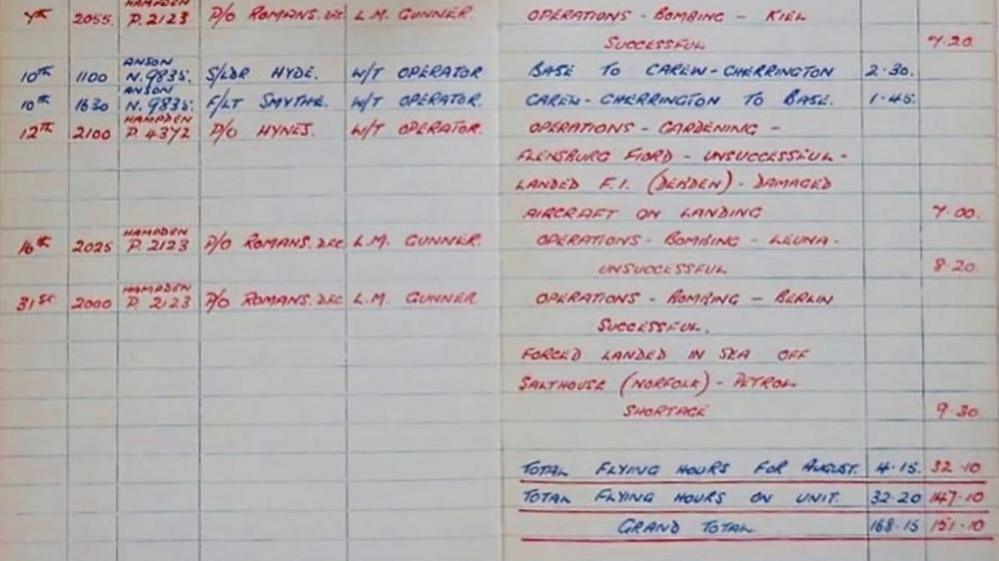 7th 2055 HAMPDEN P.2123 P/O ROMANS. DFC L.M. GUNNER. OPERATIONS - BOMBING - KIEL
SUCCESSFUL 7.20.
10th 1100 ANSON N.9835. S/LDR HYDE. W/T OPERATOR BASE TO CAREW-CHERRINGTON 2.30.
10th 1630 ANSON N.9835. F/LT SMYTHE. W/T OPERATOR. CAREW-CHERRINGTON TO BASE. 1.45.
12th 2100 HAMPDEN P.4372 P/O HYNES. W/T OPERATOR. OPERATIONS - GARDENING -
FLENSBURG FIORD - UNSUCCESSFUL -
LANDED F.I. (DEBDEN) - DAMAGED
AIRCRAFT ON LANDING 7.00.
16th 2025 HAMPDEN P.2123 P/O ROMANS. DFC. L.M. GUNNER. OPERATIONS - BOMBING - LEUNA -
UNSUCCESSFUL 8.20.
31st 2000 HAMPDEN P.2123 P/O ROMANS. DFC L.M. GUNNER OPERATIONS - BOMBING - BERLIN
SUCCESSFUL.
FORCED LANDED IN SEA OFF
SALTHOUSE (NORFOLK) - PETROL
SHORTAGE 9.30.
TOTAL FLYING HOURS FOR AUGUST. 4.15. 32.10
TOTAL FLYING HOURS ON UNIT. 32.20 147.10
GRAND TOTAL 168.15 151.10